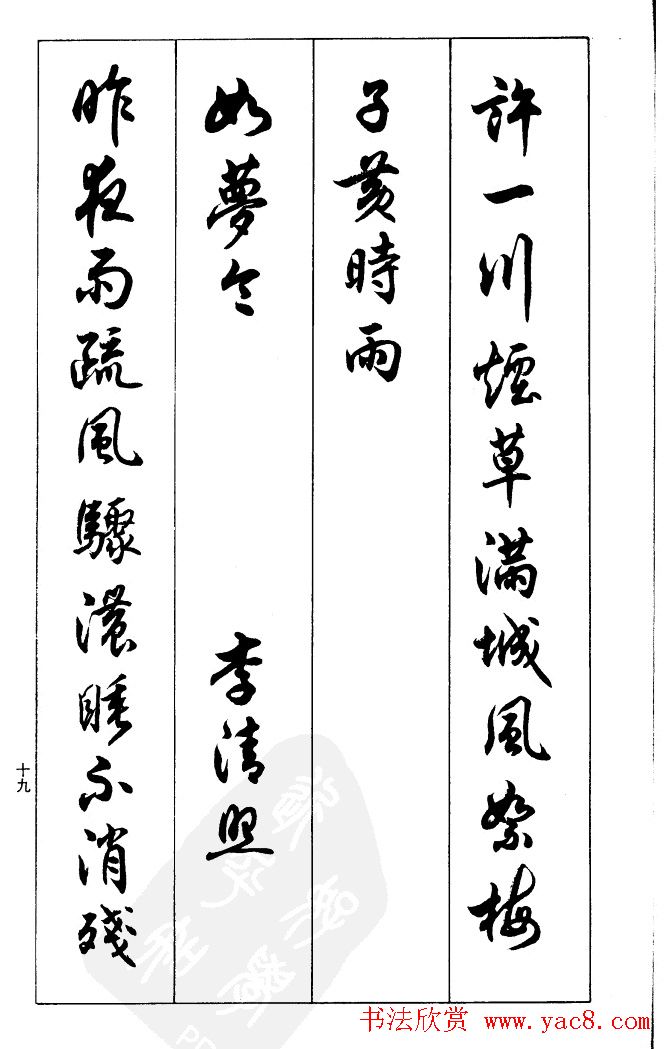 許一川煙草滿城風絮梅
子黃時雨
如夢令 李清照
昨夜雨疏風驟濃睡不消殘
十九
书法欣赏 www.yac8.com